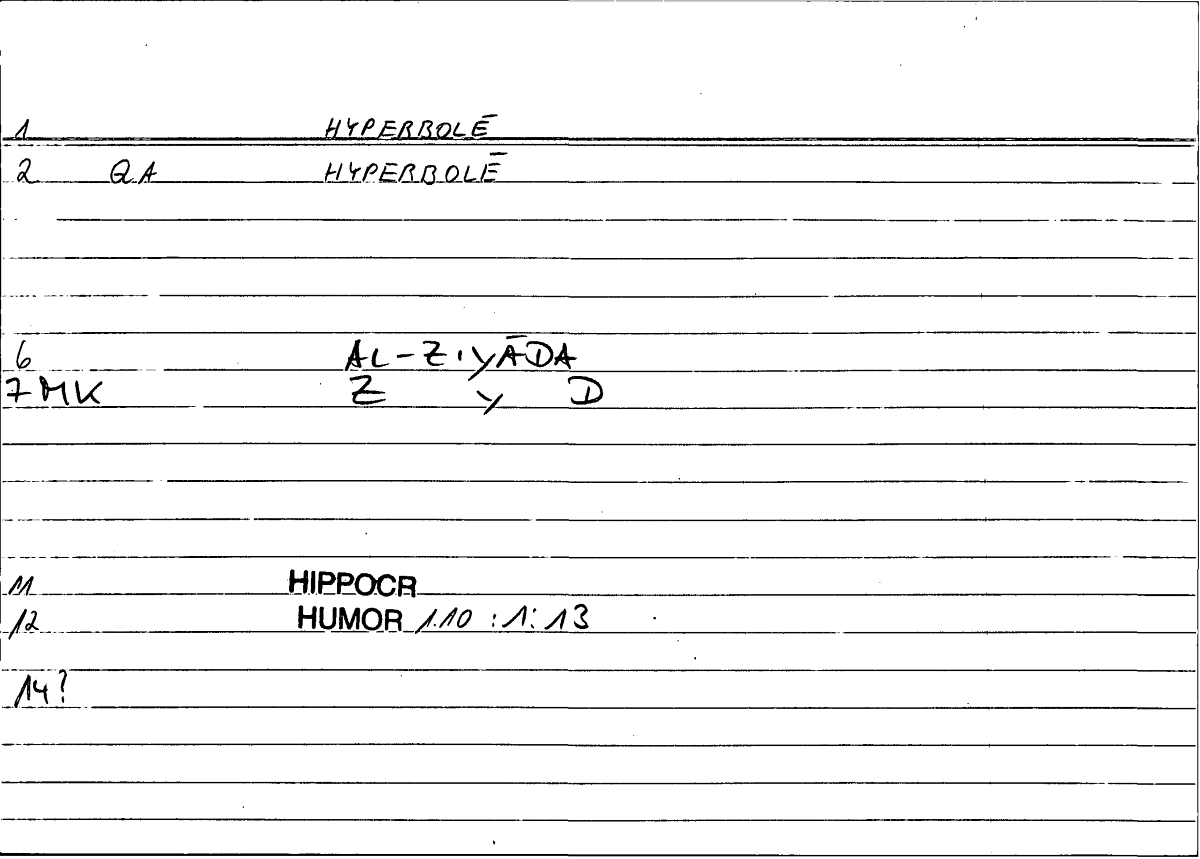 1 HYPERBOLĒ
2 QA HYPERBOLĒ
6 AL-ZIYĀDA
7 MK Z Y D
11 HIPPOCR
12 HUMOR 1.10 : 1: 13
14?